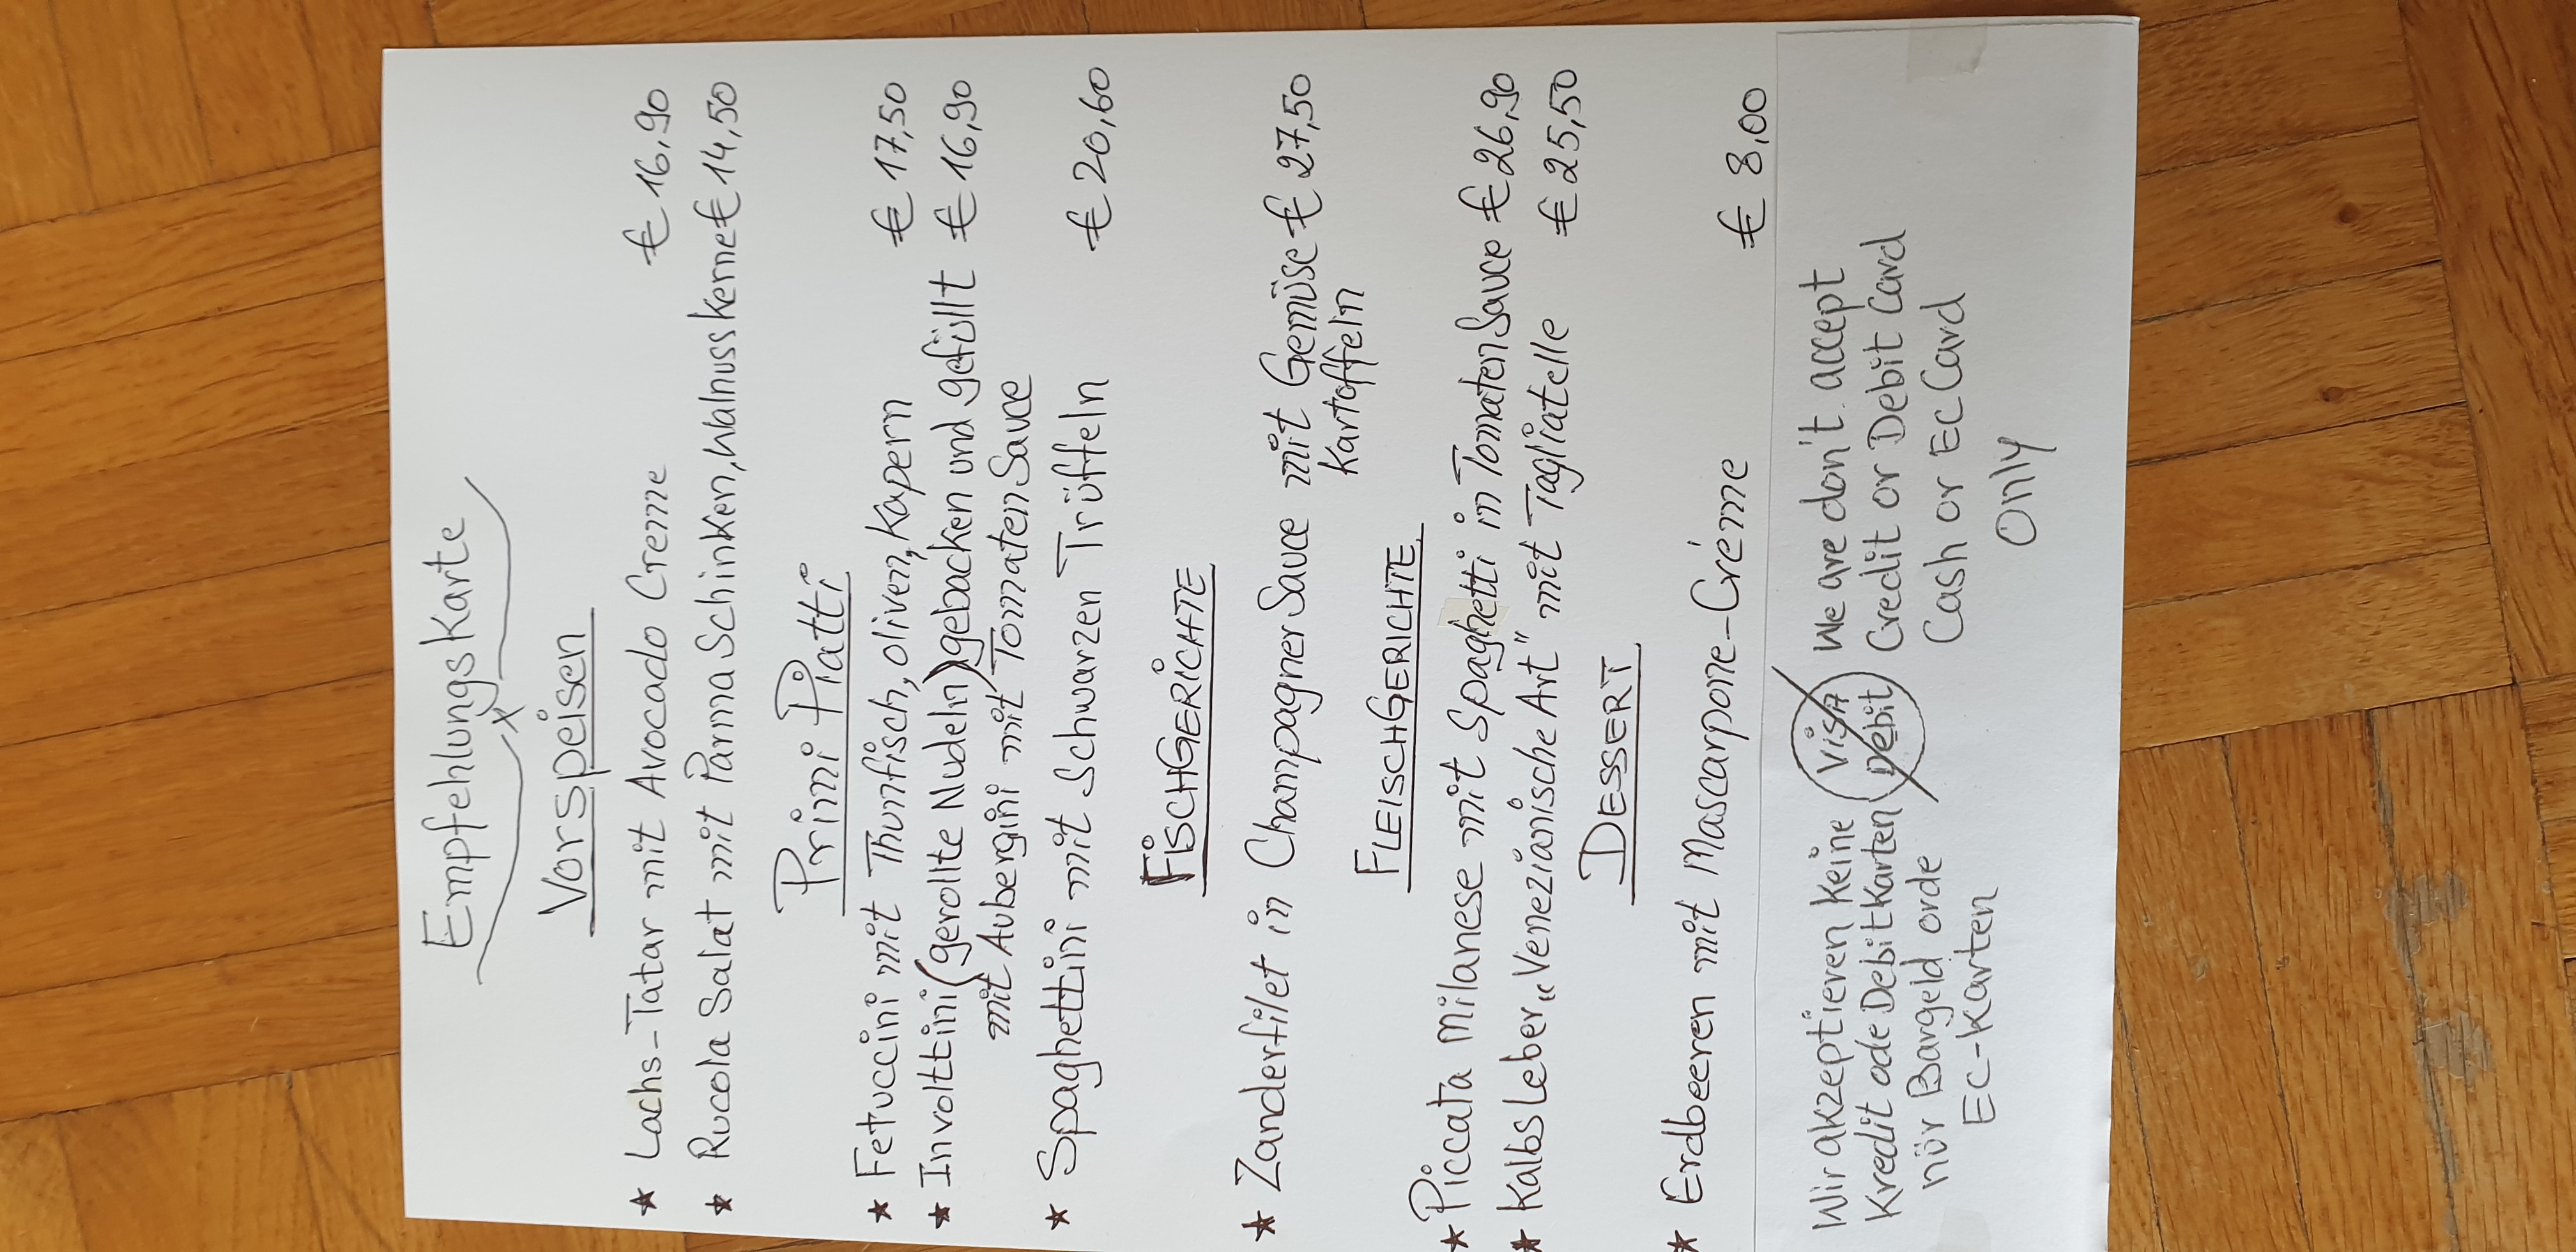 Empfehlungskarte
Vorspeisen
★ Lachs-Tatar mit Avocado Creme € 16,90
★ Rucola Salat mit Parma Schinken, Walnusskerne € 14,50
Primi Piatti
★ Fetuccini mit Thunfisch, oliven, Kapern € 17,50
★ Involttini (gerollte Nudeln) gebacken und gefüllt € 16,90
mit Aubergini mit Tomaten Sauce
★ Spaghettini mit Schwarzen Trüffeln € 20,60
FISCHGERICHTE
★ Zanderfilet in Champagner Sauce mit Gemüse € 27,50
Kartoffeln
FLEISCHGERICHTE
★ Piccata Milanese mit Spaghetti in Tomaten Sauce € 26,90
★ Kalbs Leber „Venezianische Art" mit Tagliatelle € 25,50
DESSERT
★ Erdbeeren mit Mascarpone-Créme € 8,00
Wir akzeptieren keine
Kredit ode Debitkarten
nür Bargeld orde
EC-Karten
VISA
Debit
We are don't accept
Credit or Debit Card
Cash or EC Card
Only